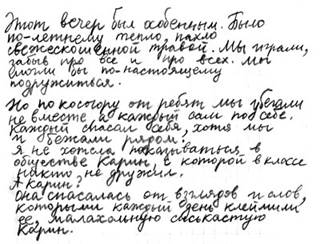 Этот вечер был особенным. Было
по-летнему тепло, пахло
свежескошенной травой. Мы играли,
забыв про все и про всех. Мы
могли бы по-настоящему
подружиться.
Но по косогору от ребят мы убегали
не вместе а каждый сам по себе.
Каждый спасал себя, хотя мы
и бежали рядом.
Я не хотела показываться в
обществе Карин, с которой в классе
никто не дружил.
А Карин?
Она спасалась от взглядов и слов,
которыми каждый день клеймили
ее, малахольную сиськастую
Карин.